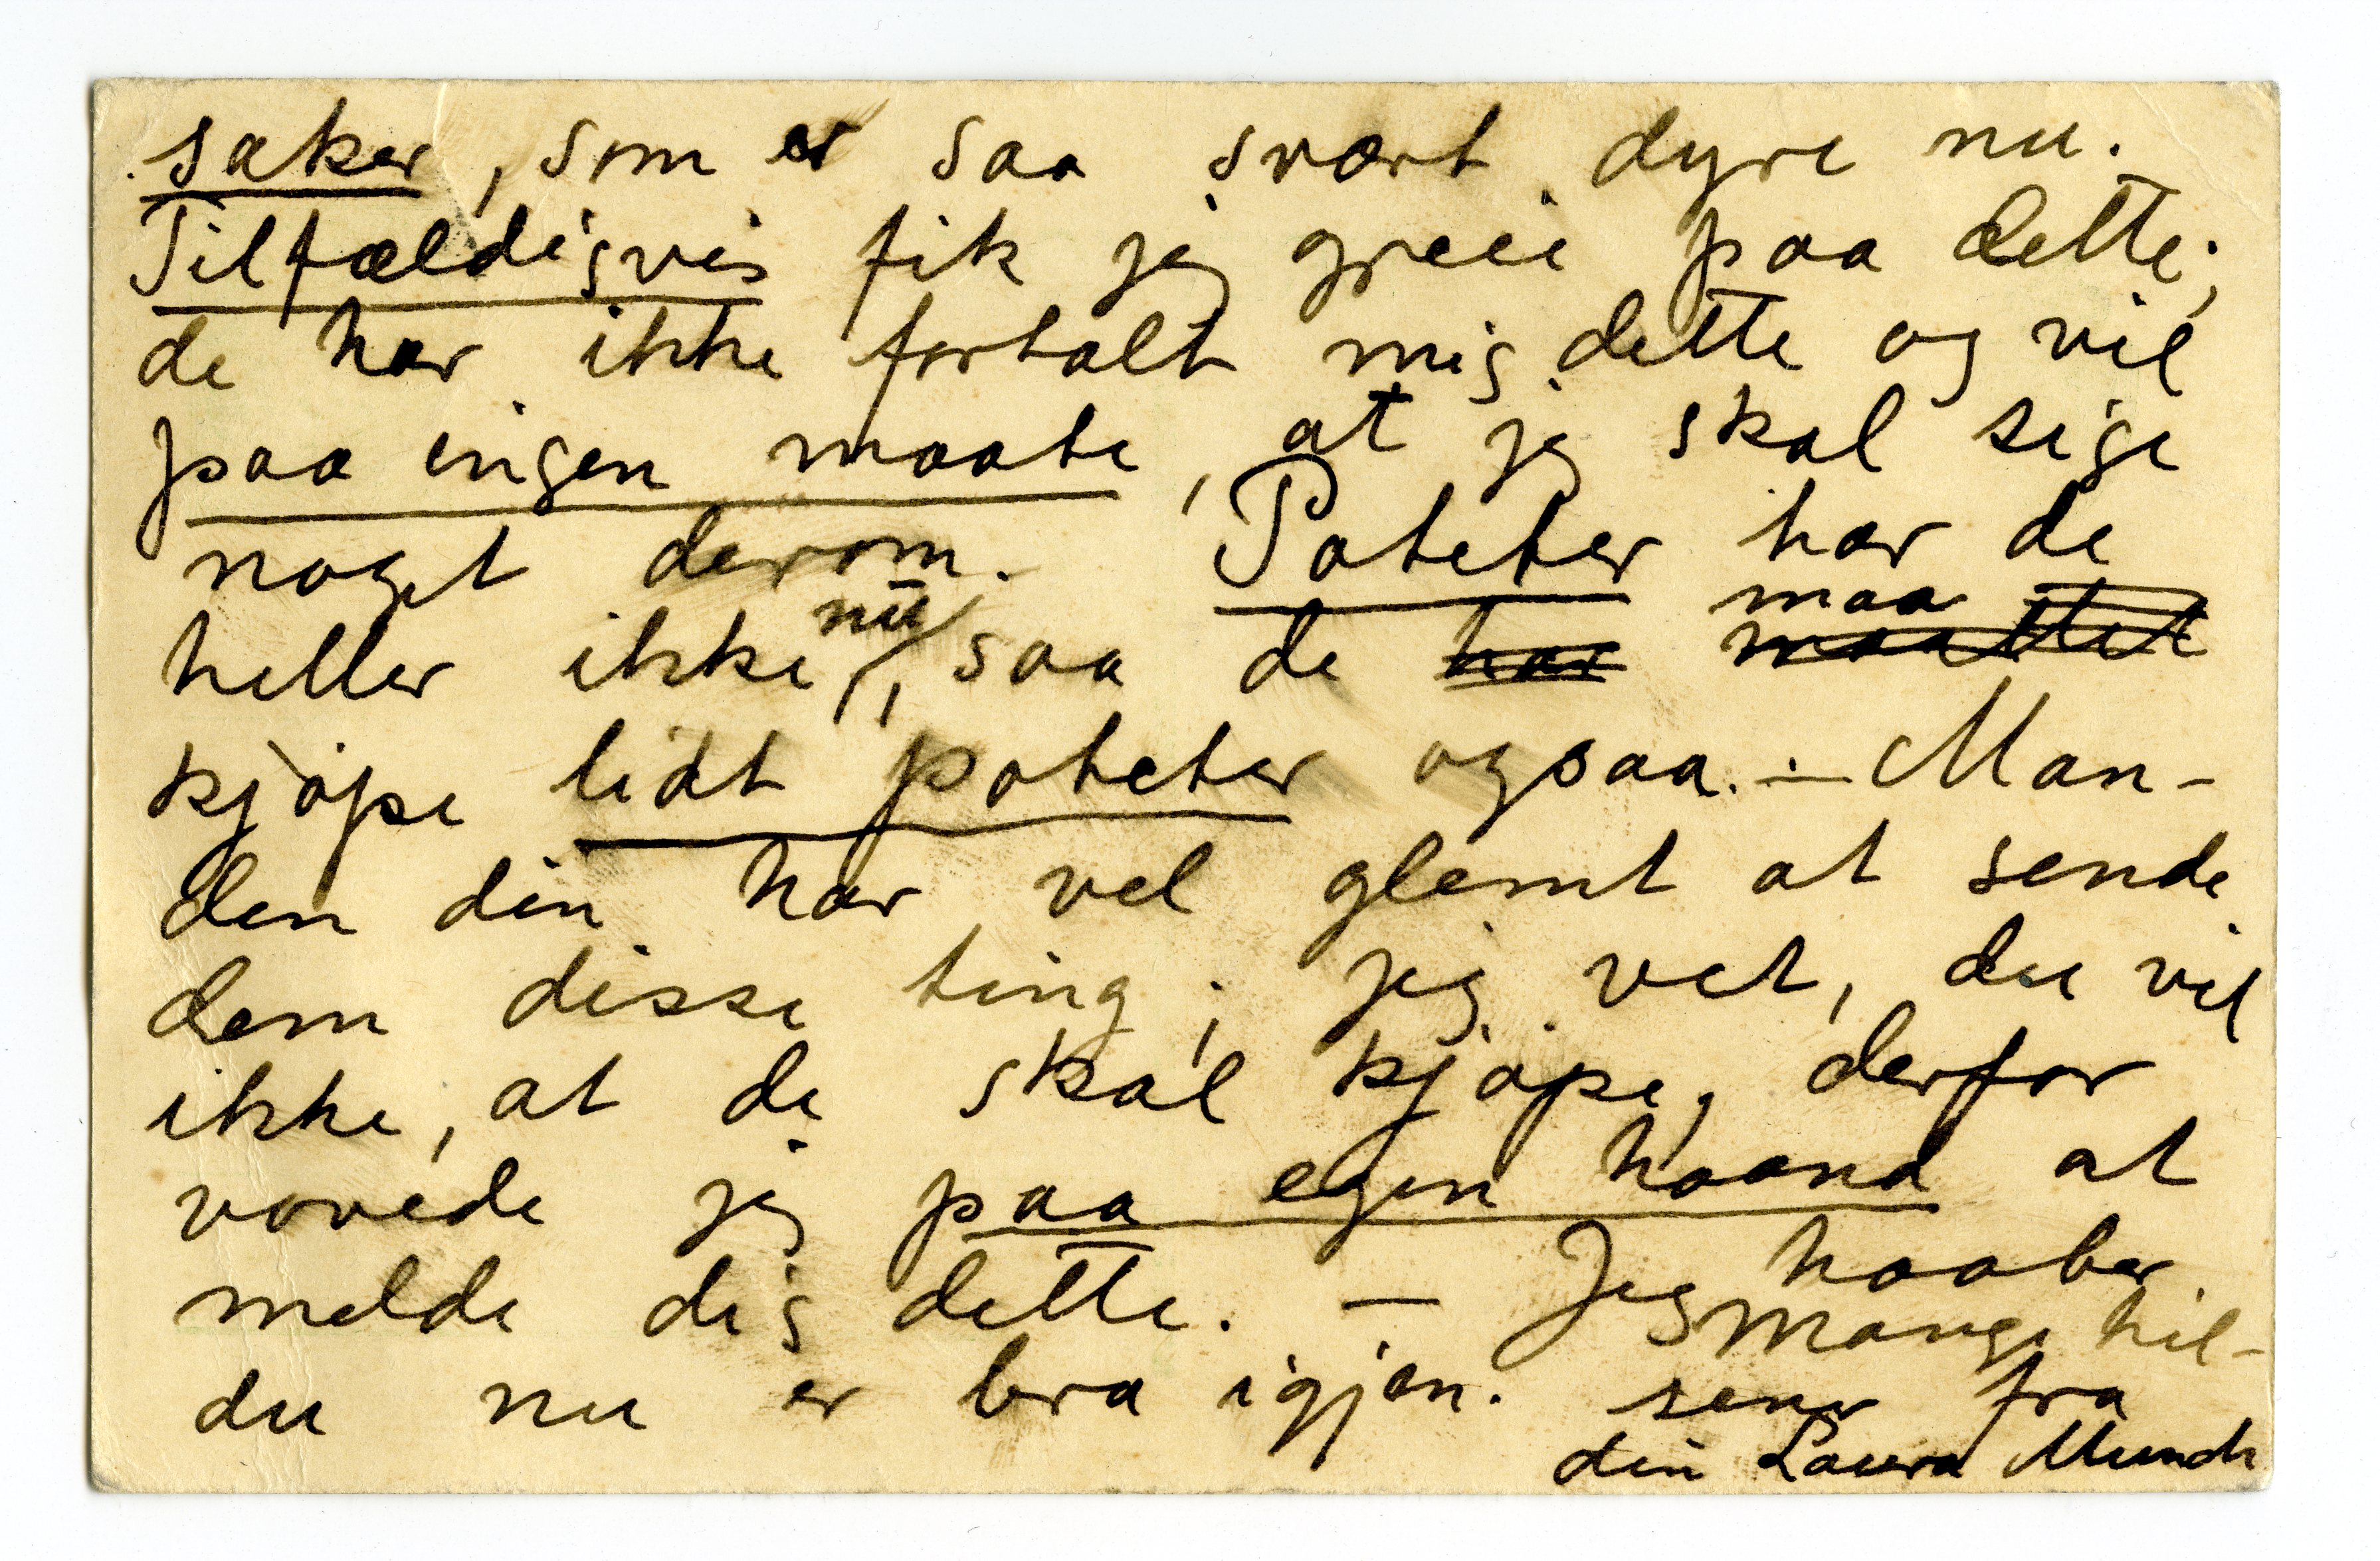 saker, som er saa svært dyre nu.
Tilfældigvis fik jeg greie paa dette;
de har ikke fortalt mig dette og vil
paa ingen maate, at jeg skal sige
noget derom. Poteter har de
heller ikke nu, saa de har maattet maa
kjøpe lidt poteter ogsaa. — Man-
den din har vel glemt at sende
dem disse ting; jeg vet, du vil
ikke, at de skal kjøpe, derfor
vovede jeg paa egen haand at
melde dig dette. — Jeg haaber
du nu er bra igjen.
Mange hil-
sener fra
din Laura Munch